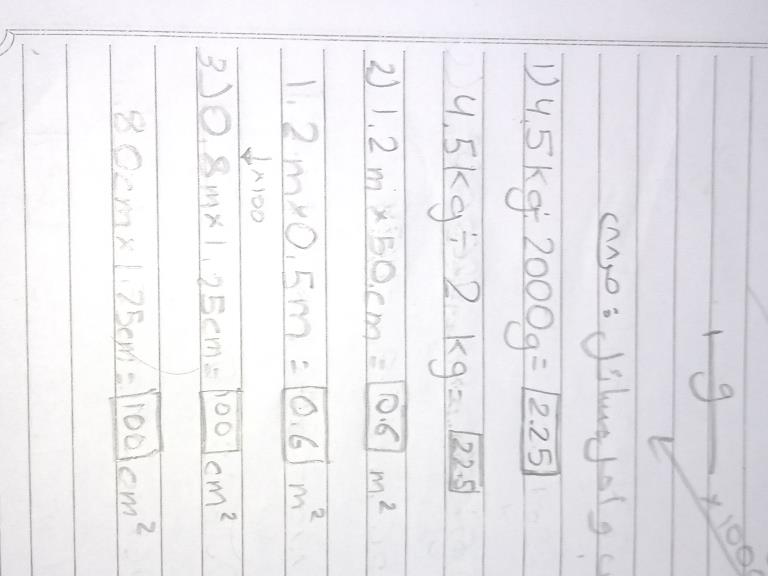 g × 100
مسائل :
1) 4.5 kg ÷ 2000g = 2.25
4.5 kg ÷ 2 kg = 2.25
2) 1.2 m × 50 cm = 0.6 m²
1.2 m × 0.5 m = 0.6 m²
↓×100
3) 0.8 m × 1.25 cm = 100 cm²
80 cm × 1.25 cm = 100 cm²